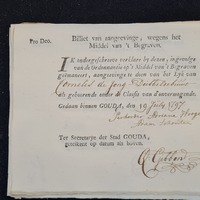 Pro Deo.
Billet van aangevinge, wegens het
Middel van 't Begraven.
IK ondergeschreven verklaar by deezen, ingevolge
van de Ordonnantie op 't Middel van 't Begraven
geëmaneert, aangevinge te doen van het Lyk van
Cornelis de Jong
als gehoorende onder de Classis van d'onvermogende.
Gedaan binnen GOUDA, den 19 July 1797
Ter Secretarye der Stad GOUDA,
getekent op datum als boven.